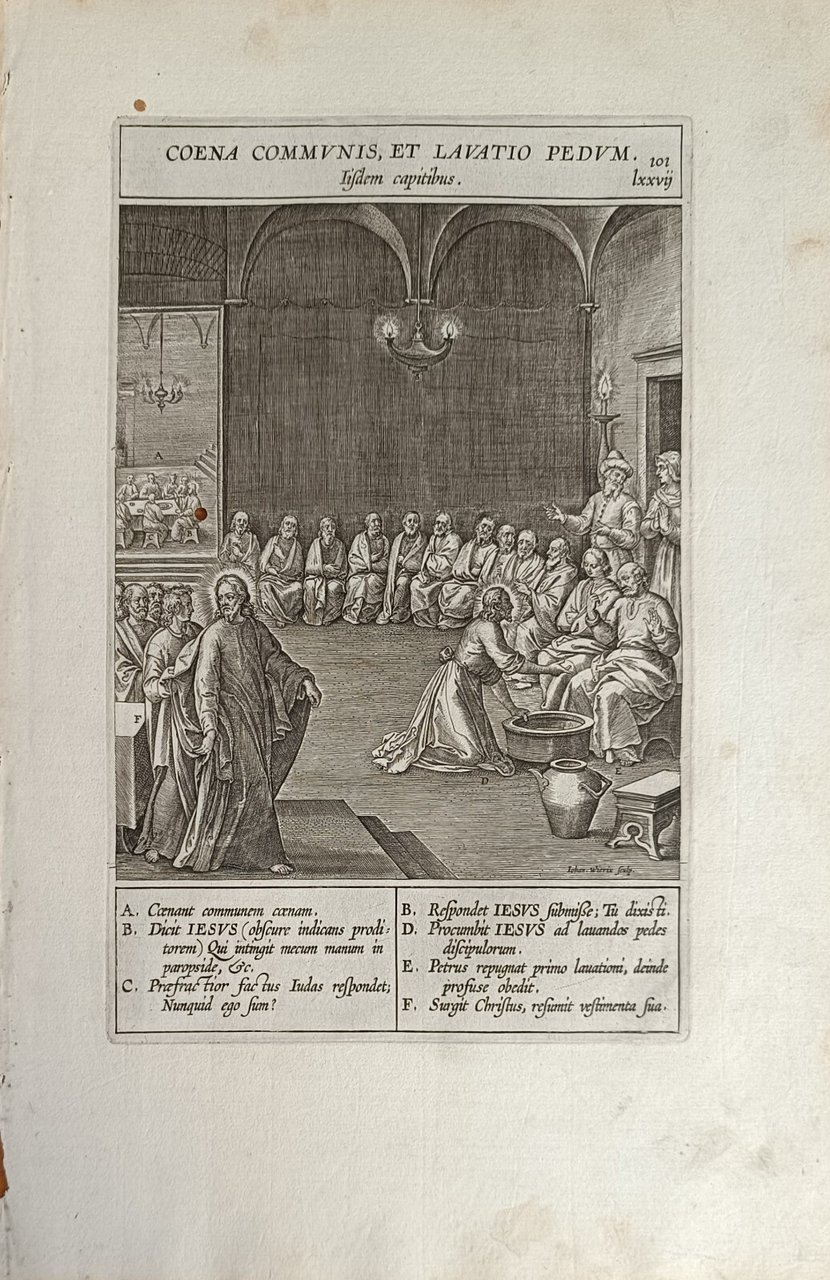 COENA COMMVNIS, ET LAVATIO PEDVM. 101
Iiſdem capitibus. lxxvij
A
F
D
E
Iohan. Wierix ſculp.
A. Cœnant communem cœnam.
B. Dicit IESVS (obſcure indicans prodi:
torem) Qui intingit mecum manum in
paropside, &c.
C. Præfractior factus Iudas reſpondet;
Nunquid ego ſum?
B. Reſpondet IESVS ſubmiſſe; Tu dixisti.
D. Procumbit IESVS ad lauandos pedes
diſcipulorum.
E. Petrus repugnat primo lauationi, deinde
profuse obedit.
F. Surgit Chriſtus, reſumit veſtimenta ſua.